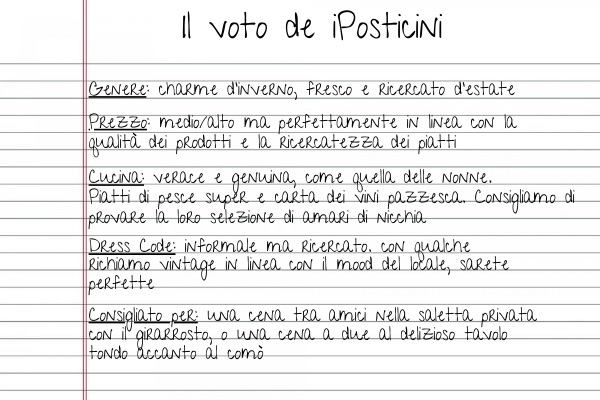 Il voto de iPosticini
Genere: charme d'inverno, fresco e ricercato d'estate
Prezzo: medio/alto ma perfettamente in linea con la
qualità dei prodotti e la ricercatezza dei piatti
Cucina: verace e genuina, come quella delle nonne.
Piatti di pesce super e carta dei vini pazzesca. Consigliamo di
provare la loro selezione di amari di nicchia
Dress Code: informale ma ricercato. con qualche
richiamo vintage in linea con il mood del locale, sarete
perfette
Consigliato per: una cena tra amici nella saletta privata
con il girarrosto, o una cena a due al delizioso tavolo
tondo accanto al comò